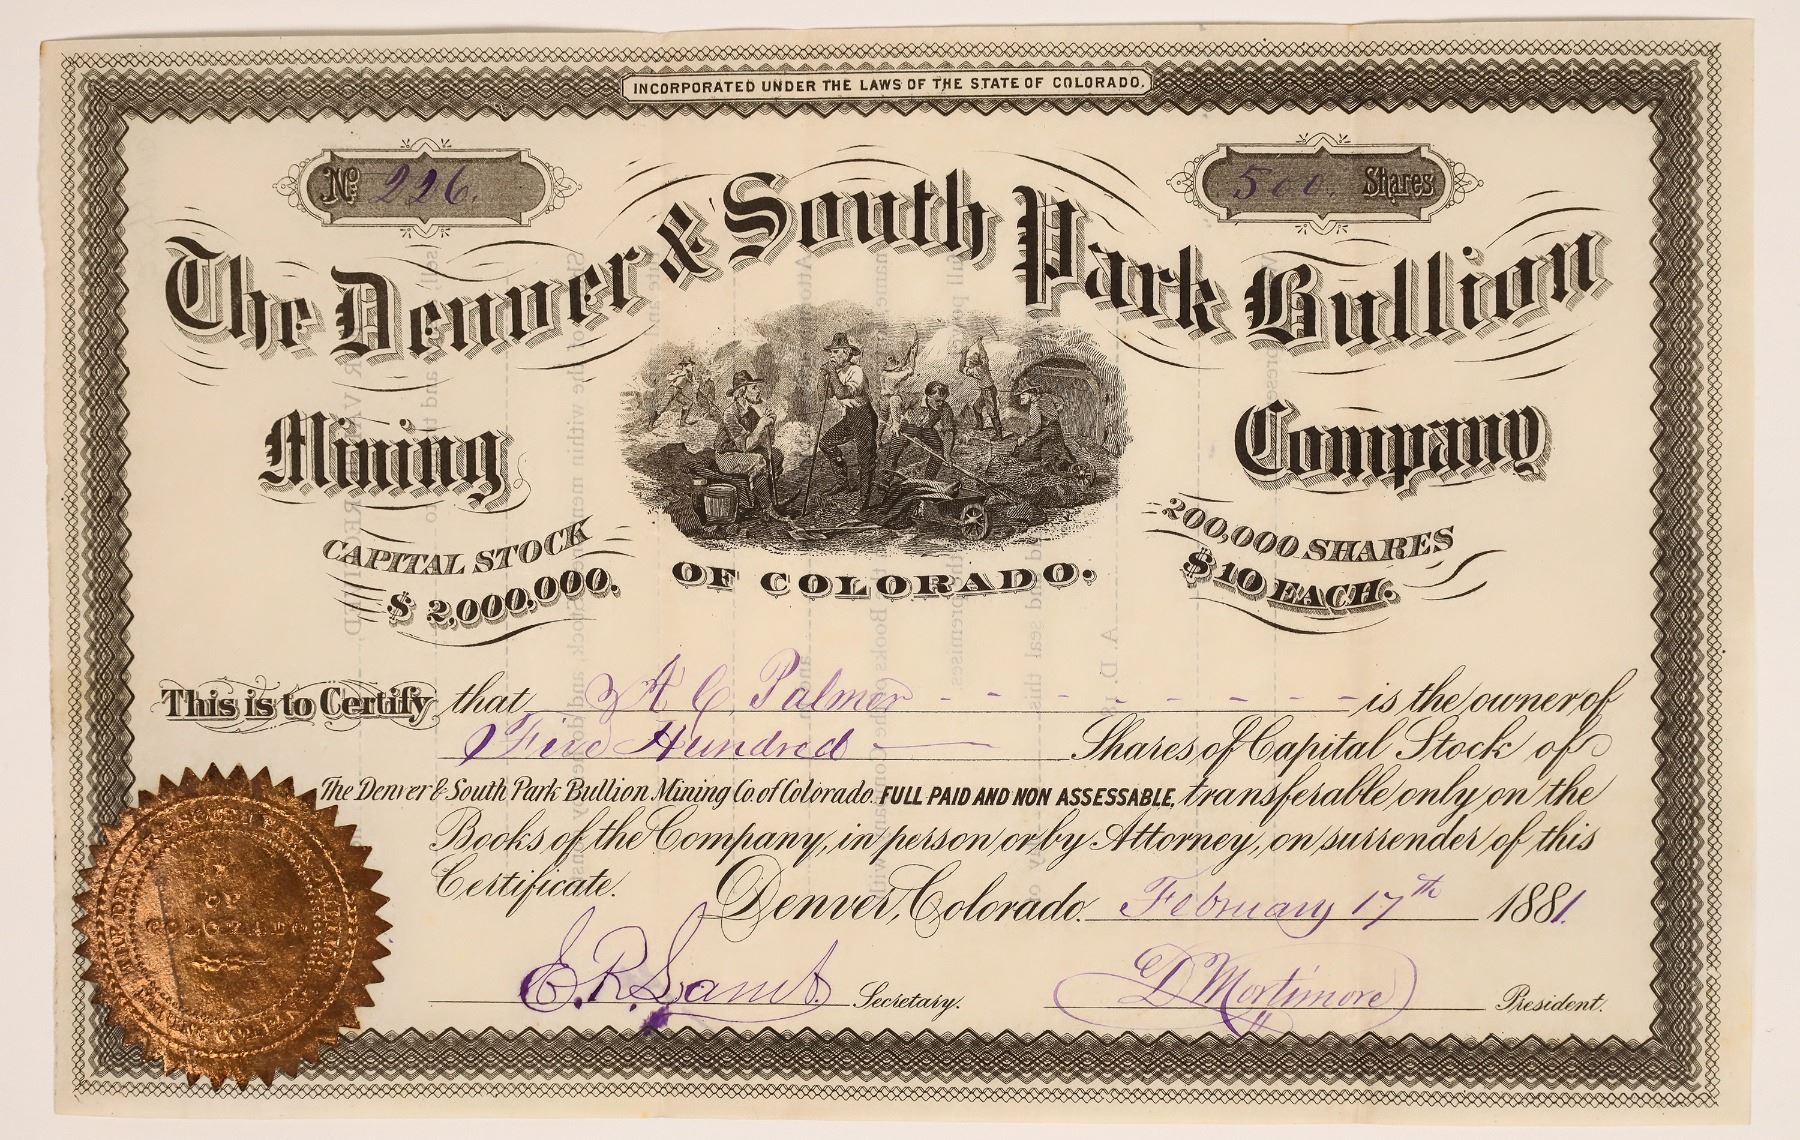 INCORPORATED UNDER THE LAWS OF THE STATE OF COLORADO.
No 226.
500. Shares
The Denver & South Park Bullion
Mining Company
CAPITAL STOCK
$2,000,000.
200,000 SHARES
$10 EACH.
OF COLORADO.
This is to Certify that A C Palmer is the owner of
Five Hundred Shares of Capital Stock of
The Denver & South Park Bullion Mining Co. of Colorado. FULL PAID AND NON ASSESSABLE, transferable only on the
Books of the Company, in person or by Attorney, on surrender of this
Certificate.
Denver, Colorado. February 17th 1881.
E. R. Lamb. Secretary.
D Mortimore President.
OF
COLORADO